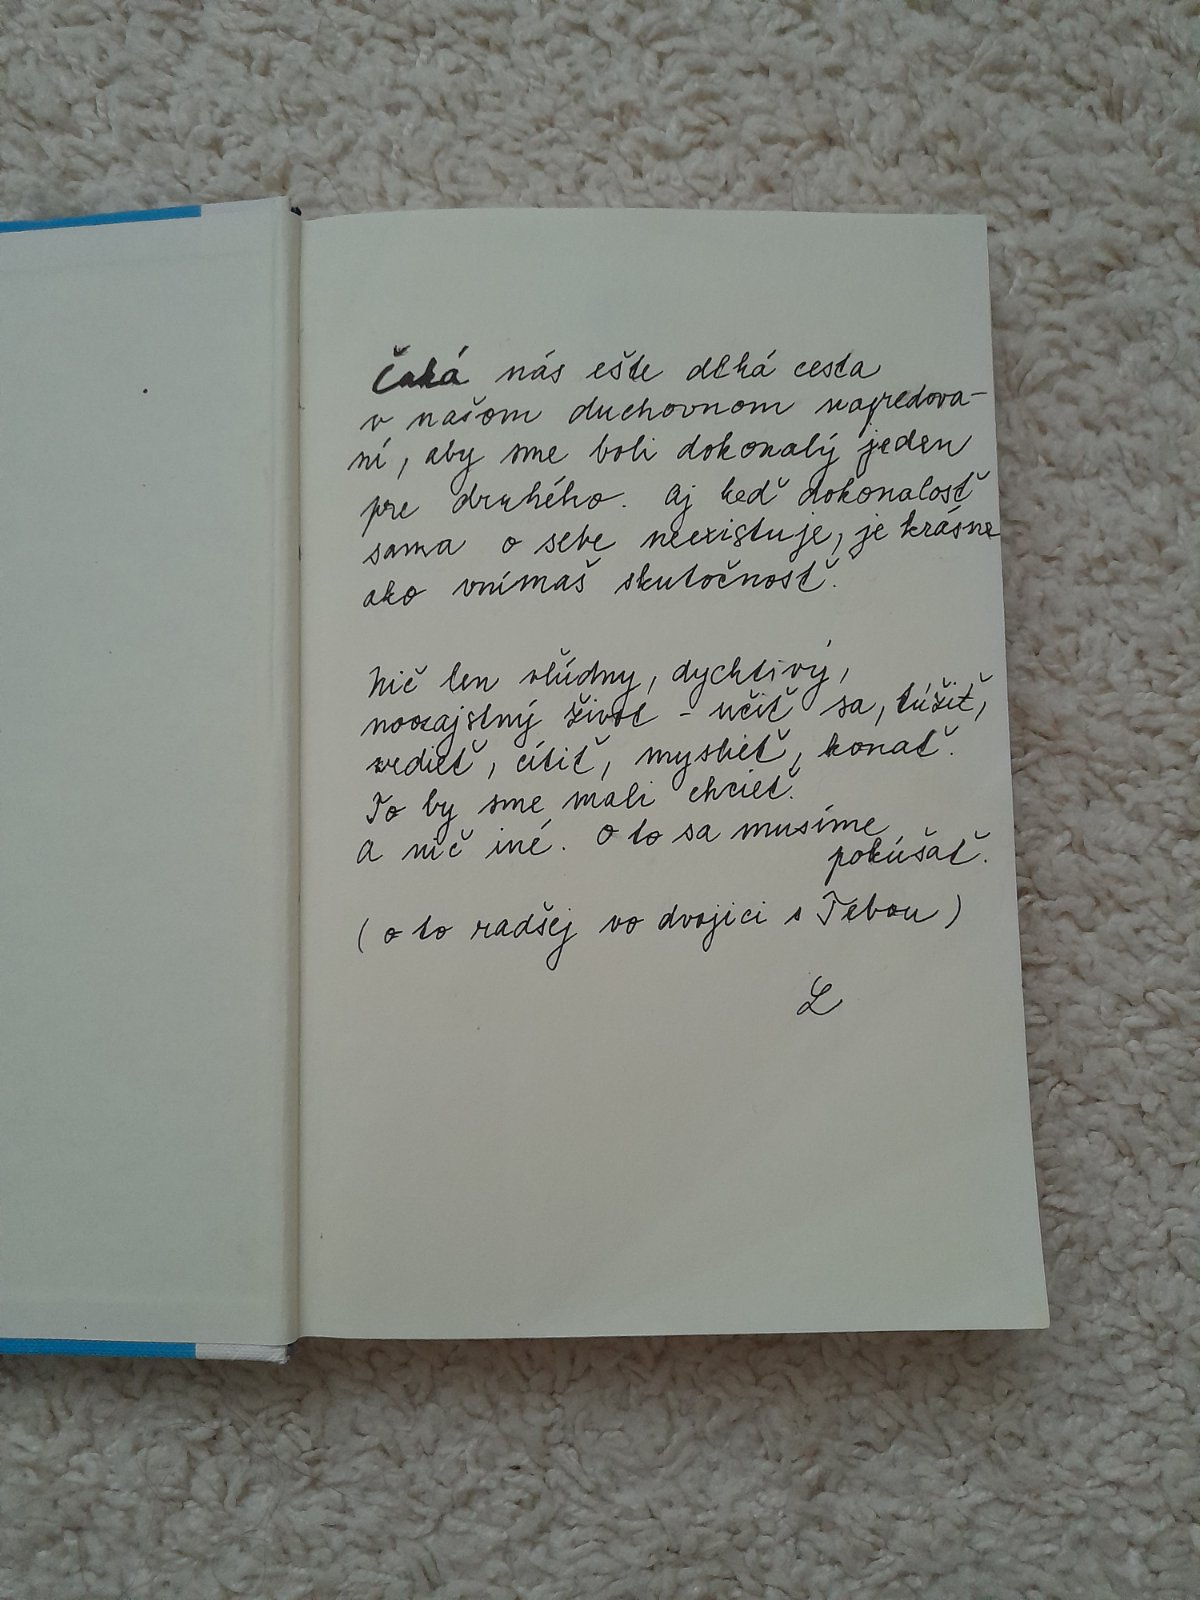 Čaká nás ešte dlhá cesta
v našom duchovnom napredova-
ní, aby sme boli dokonalý jeden
pre druhého. Aj keď dokonalosť
sama o sebe neexistuje, je krásne
ako vnímaš skutočnosť.
Nič len vľúdny, dychtivý,
naozajstný život - učiť sa, túžiť,
vedieť, cítiť, myslieť, konať.
To by sme mali chcieť.
A nič iné. O to sa musíme
pokúšať.
(o to radšej vo dvojici s Tebou)
L